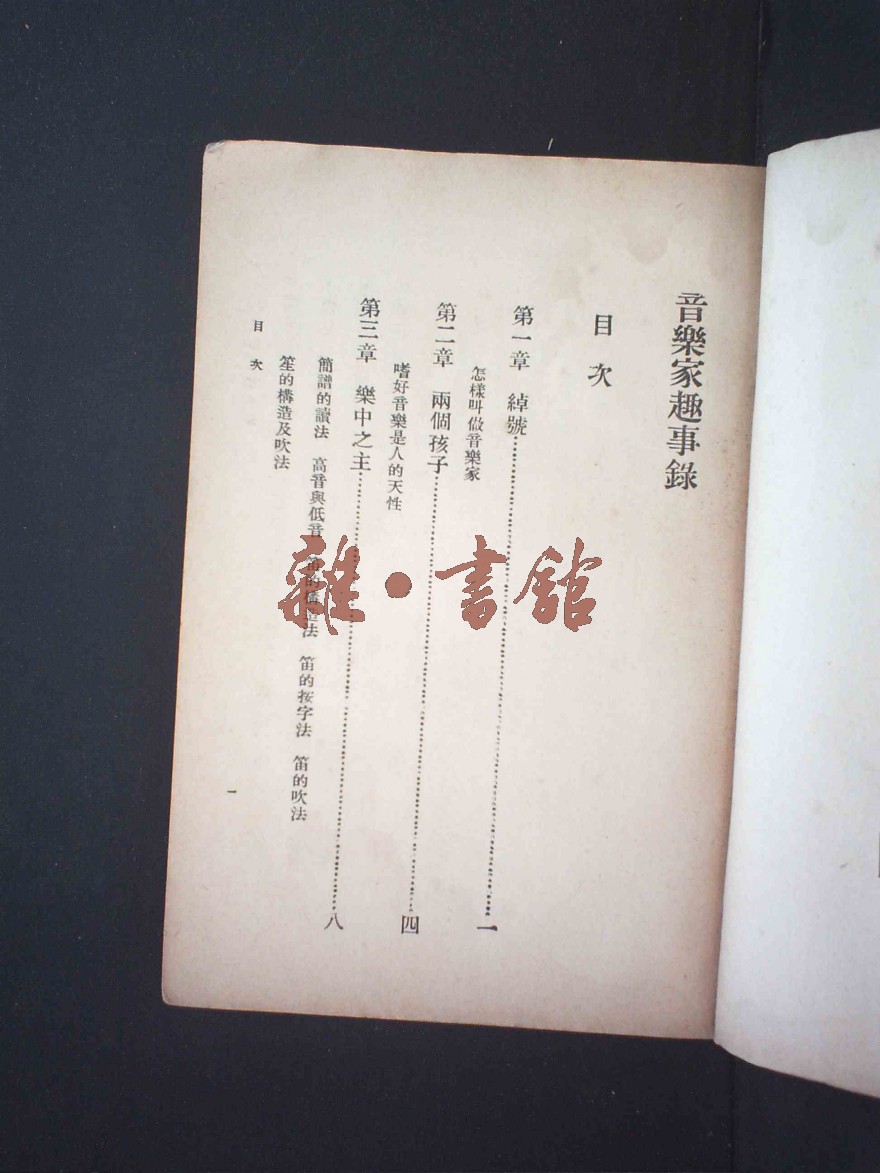 音樂家趣事錄
目次
第一章 綽號……一
怎樣叫做音樂家
第二章 兩個孩子……四
嗜好音樂是人的天性
第三章 樂中之主……八
簡譜的讀法 高音與低音 笛的構造法 笛的按字法 笛的吹法
笙的構造及吹法
目次
一
雜·書館